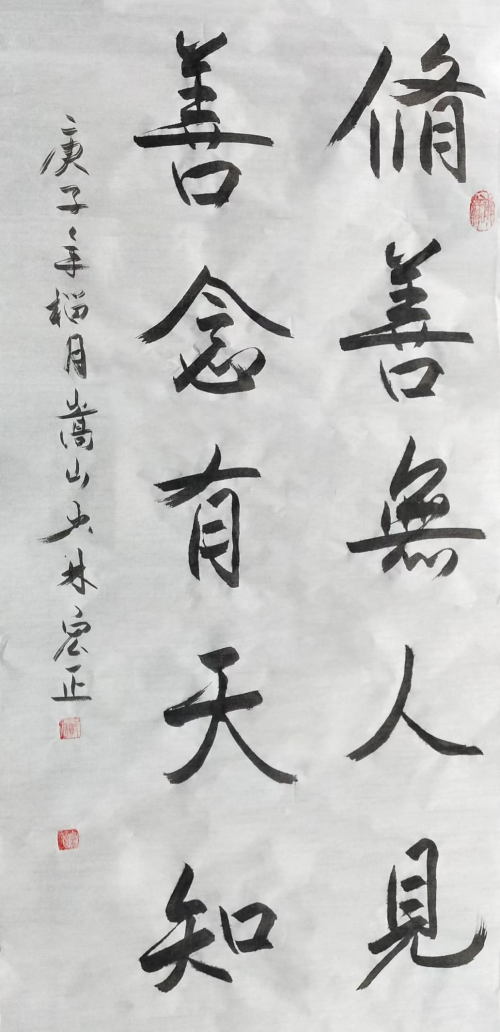 脩善無人見
善念有天知
庚子年榴月嵩山少林宏正